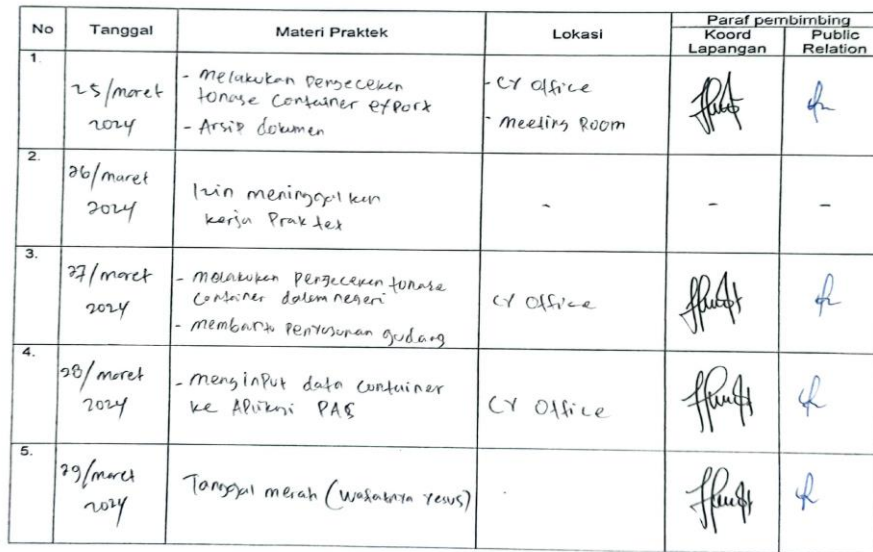 No Tanggal Materi Praktek Lokasi Paraf pembimbing
Koord Lapangan Public Relation
1.
25/maret
2024
- Melakukan Pengecekan
tonase Container export
- Arsip dokumen
- CY Office
- Meeting Room
2.
26/maret
2024
Izin meninggalkan
kerja Praktek
-
-
-
3.
27/maret
2024
- melakukan Pengecekan tonase
Container dalam negeri
- membantu Penyusunan gudang
CY Office
4.
28/maret
2024
- menginput data Container
ke Aplikasi PAS
CY Office
5.
29/maret
2024
Tanggal merah (wafatnya Yesus)
-